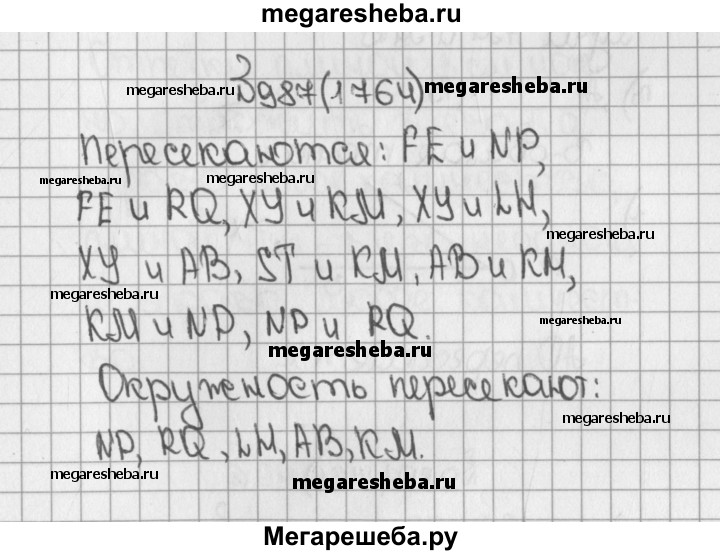 megaresheba.ru
987(1764)
megaresheba.ru megaresheba.ru
Пересекаются: FE и NP,
megaresheba.ru megaresheba.ru
FE и RQ, XY и KM, XY и LH,
megaresheba.ru
XY и AB, ST и KM, AB и KM,
megaresheba.ru
KM и NP, NP и RQ.
megaresheba.ru
megaresheba.ru
Окружность пересекают:
megaresheba.ru
NP, RQ, LH, AB, KM.
megaresheba.ru
megaresheba.ru
Мегарешеба.ру